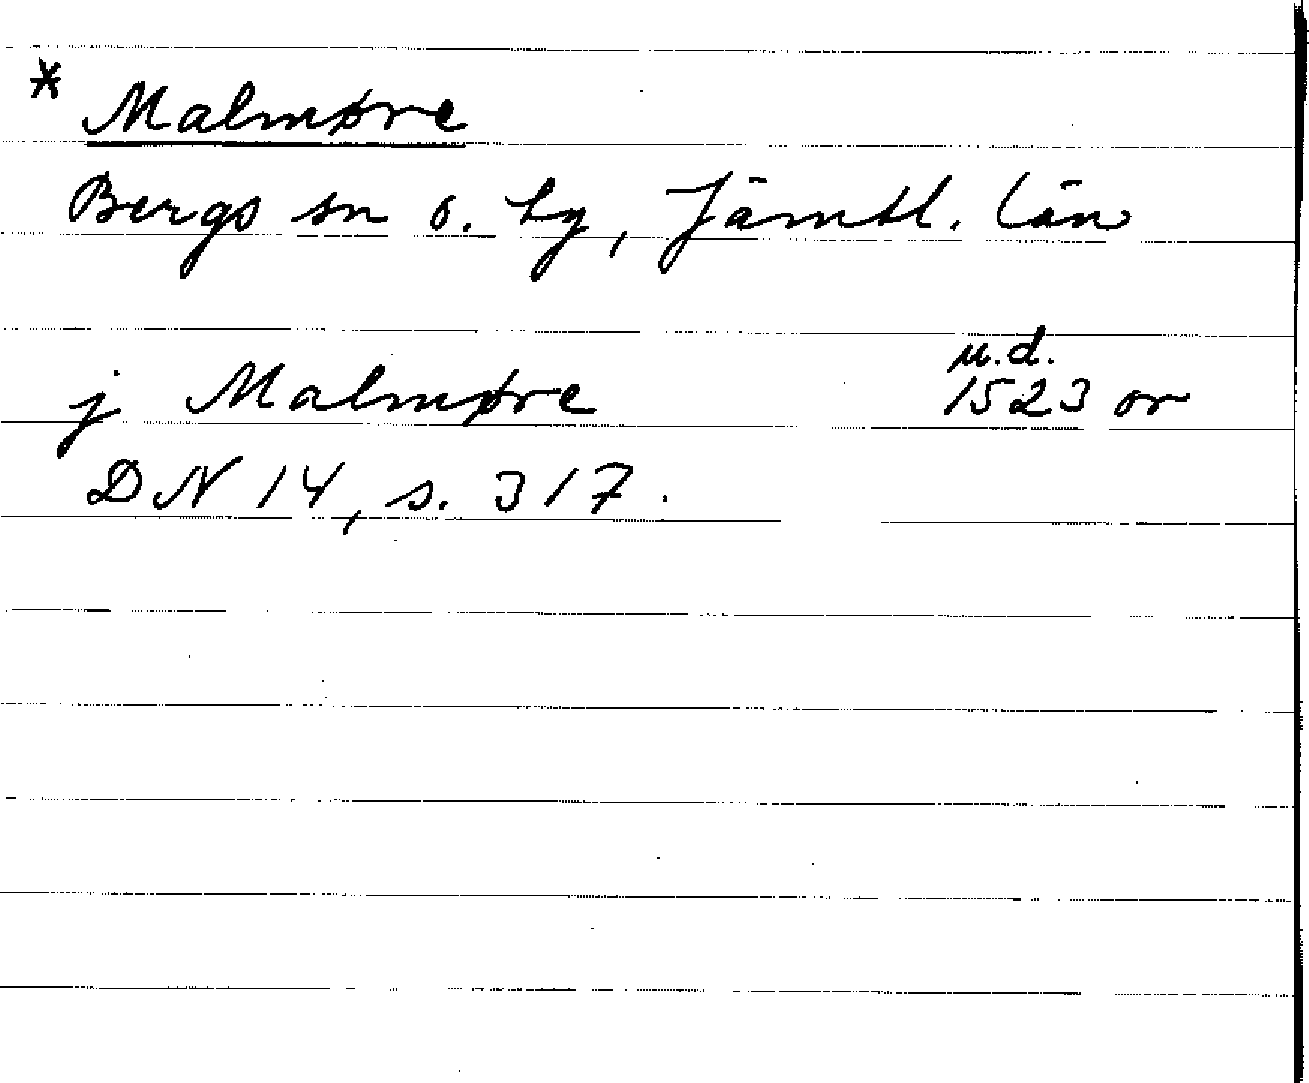 * Malmøre
Bergs sn o. tg, Jämtl. län
j Malmøre u.d. 1523 or
DN 14, s. 317.